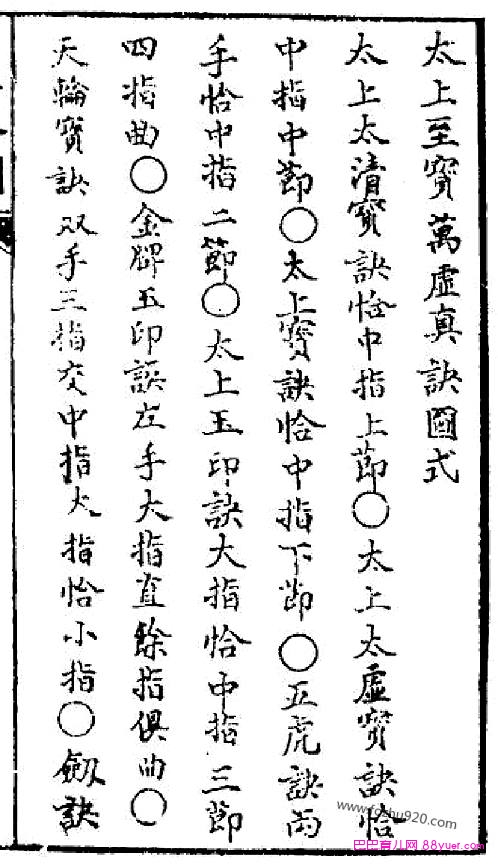 太上至寳萬虛真訣圖式
太上太清寳訣恰中指上節〇太上太虛寳訣恰
中指中節〇太上寳訣恰中指下節〇五虎訣两
手恰中指二節〇太上玉印訣大指恰中指三節
四指曲〇金牌玉印訣左手大指直餘指俱曲〇
天輪寳訣双手三指交中指大指恰小指〇劔訣
www.foshu920.com
巴巴育儿网 88yuer.com